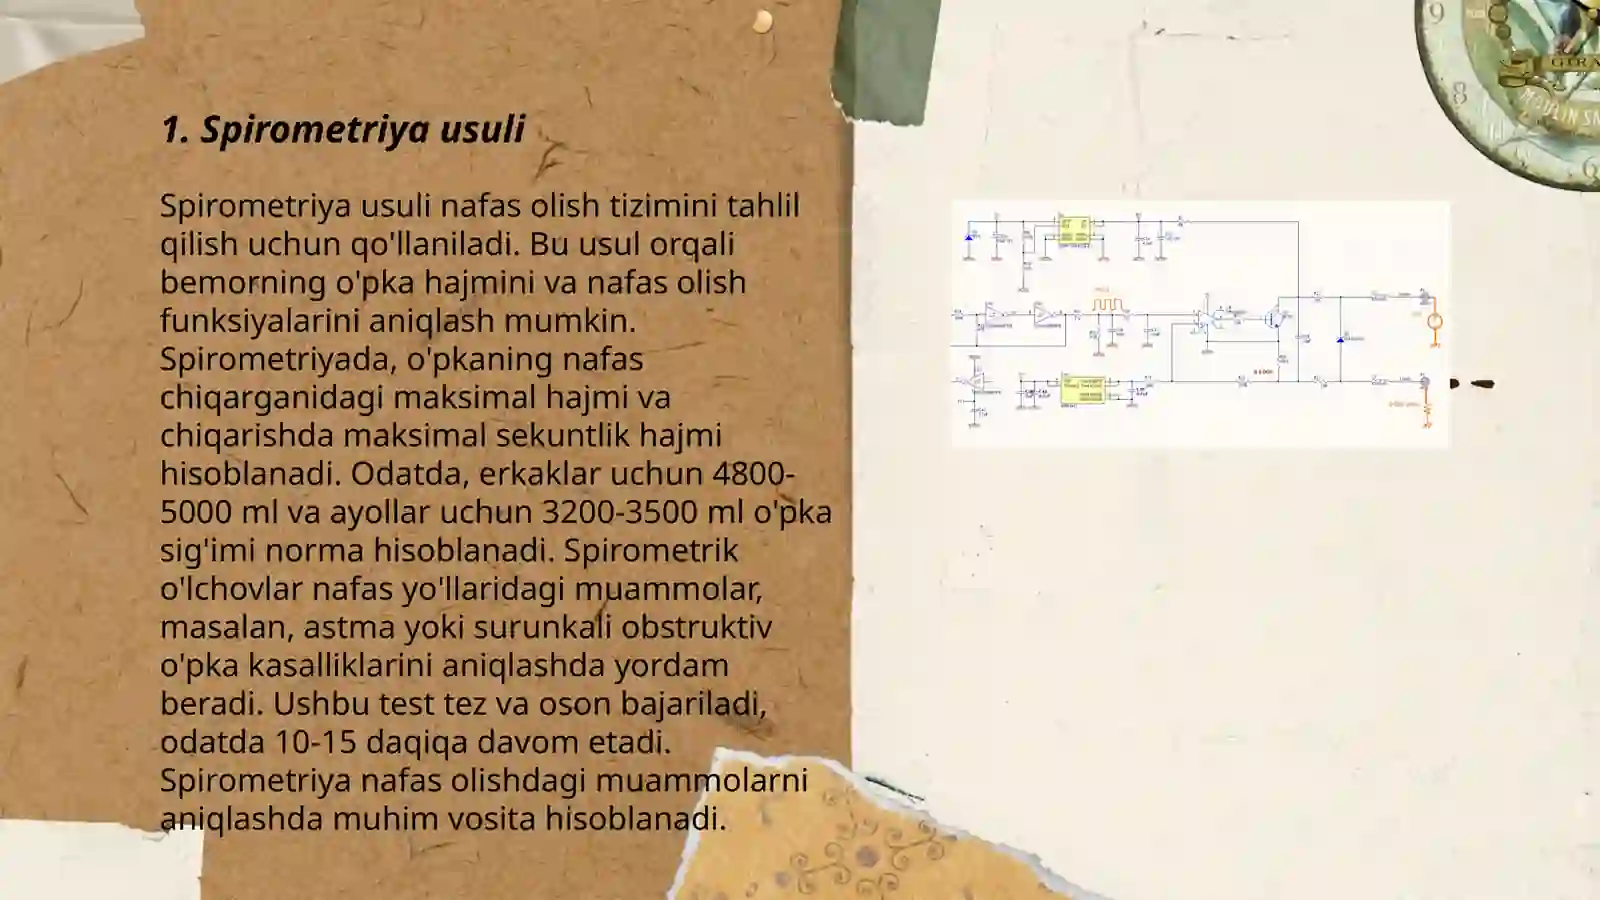 1. Spirometriya usuli
Spirometriya usuli nafas olish tizimini tahlil
qilish uchun qo'llaniladi. Bu usul orqali
bemorning o'pka hajmini va nafas olish
funksiyalarini aniqlash mumkin.
Spirometriyada, o'pkaning nafas
chiqarganidagi maksimal hajmi va
chiqarishda maksimal sekuntlik hajmi
hisoblanadi. Odatda, erkaklar uchun 4800-
5000 ml va ayollar uchun 3200-3500 ml o'pka
sig'imi norma hisoblanadi. Spirometrik
o'lchovlar nafas yo'llaridagi muammolar,
masalan, astma yoki surunkali obstruktiv
o'pka kasalliklarini aniqlashda yordam
beradi. Ushbu test tez va oson bajariladi,
odatda 10-15 daqiqa davom etadi.
Spirometriya nafas olishdagi muammolarni
aniqlashda muhim vosita hisoblanadi.
9
8
6